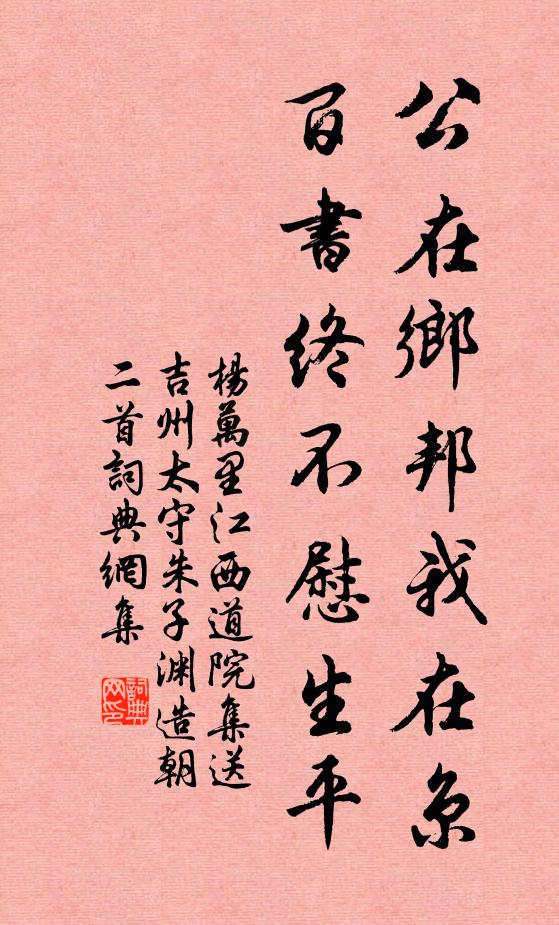 公在鄉邦我在京
百書終不慰生平
楊萬里江西道院集送
吉州太守朱子渊造朝
二首詞典網集
詞典網印